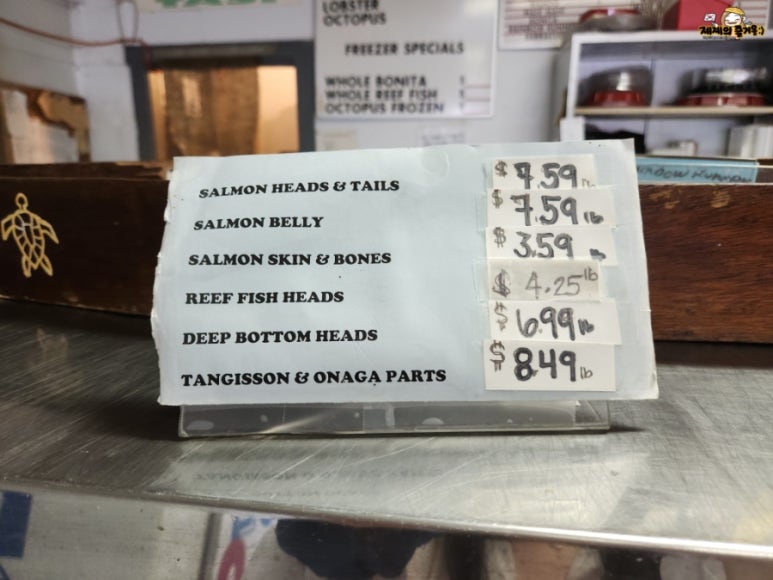 LOBSTER
OCTOPUS
FREEZER SPECIALS
WHOLE BONITA
WHOLE REEF FISH
OCTOPUS FROZEN
SALMON HEADS & TAILS $7.59 lb
SALMON BELLY $7.59 lb
SALMON SKIN & BONES $3.59 lb
REEF FISH HEADS $4.25 lb
DEEP BOTTOM HEADS $6.99 lb
TANGISSON & ONAGA PARTS $8.49 lb